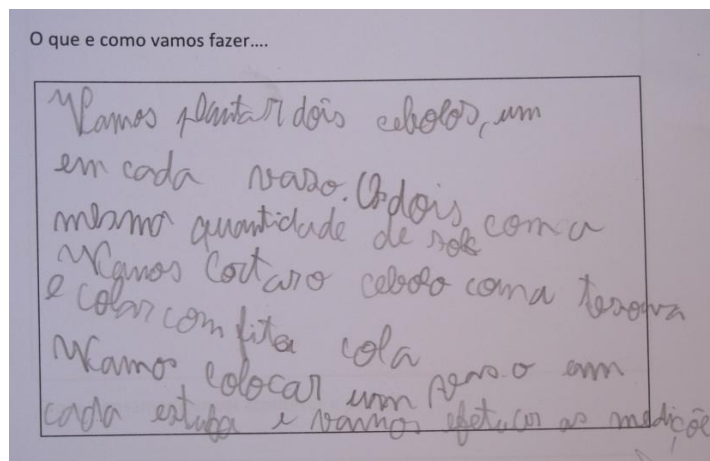 O que e como vamos fazer....
Vamos plantar dois cebolos, um
em cada vaso. Os dois com a
mesma quantidade de sol
Vamos Cortar o cebolo com a tesoura
e colar com fita cola
Vamos colocar um vaso em
cada estufa e vamos efetuar as mediçõe